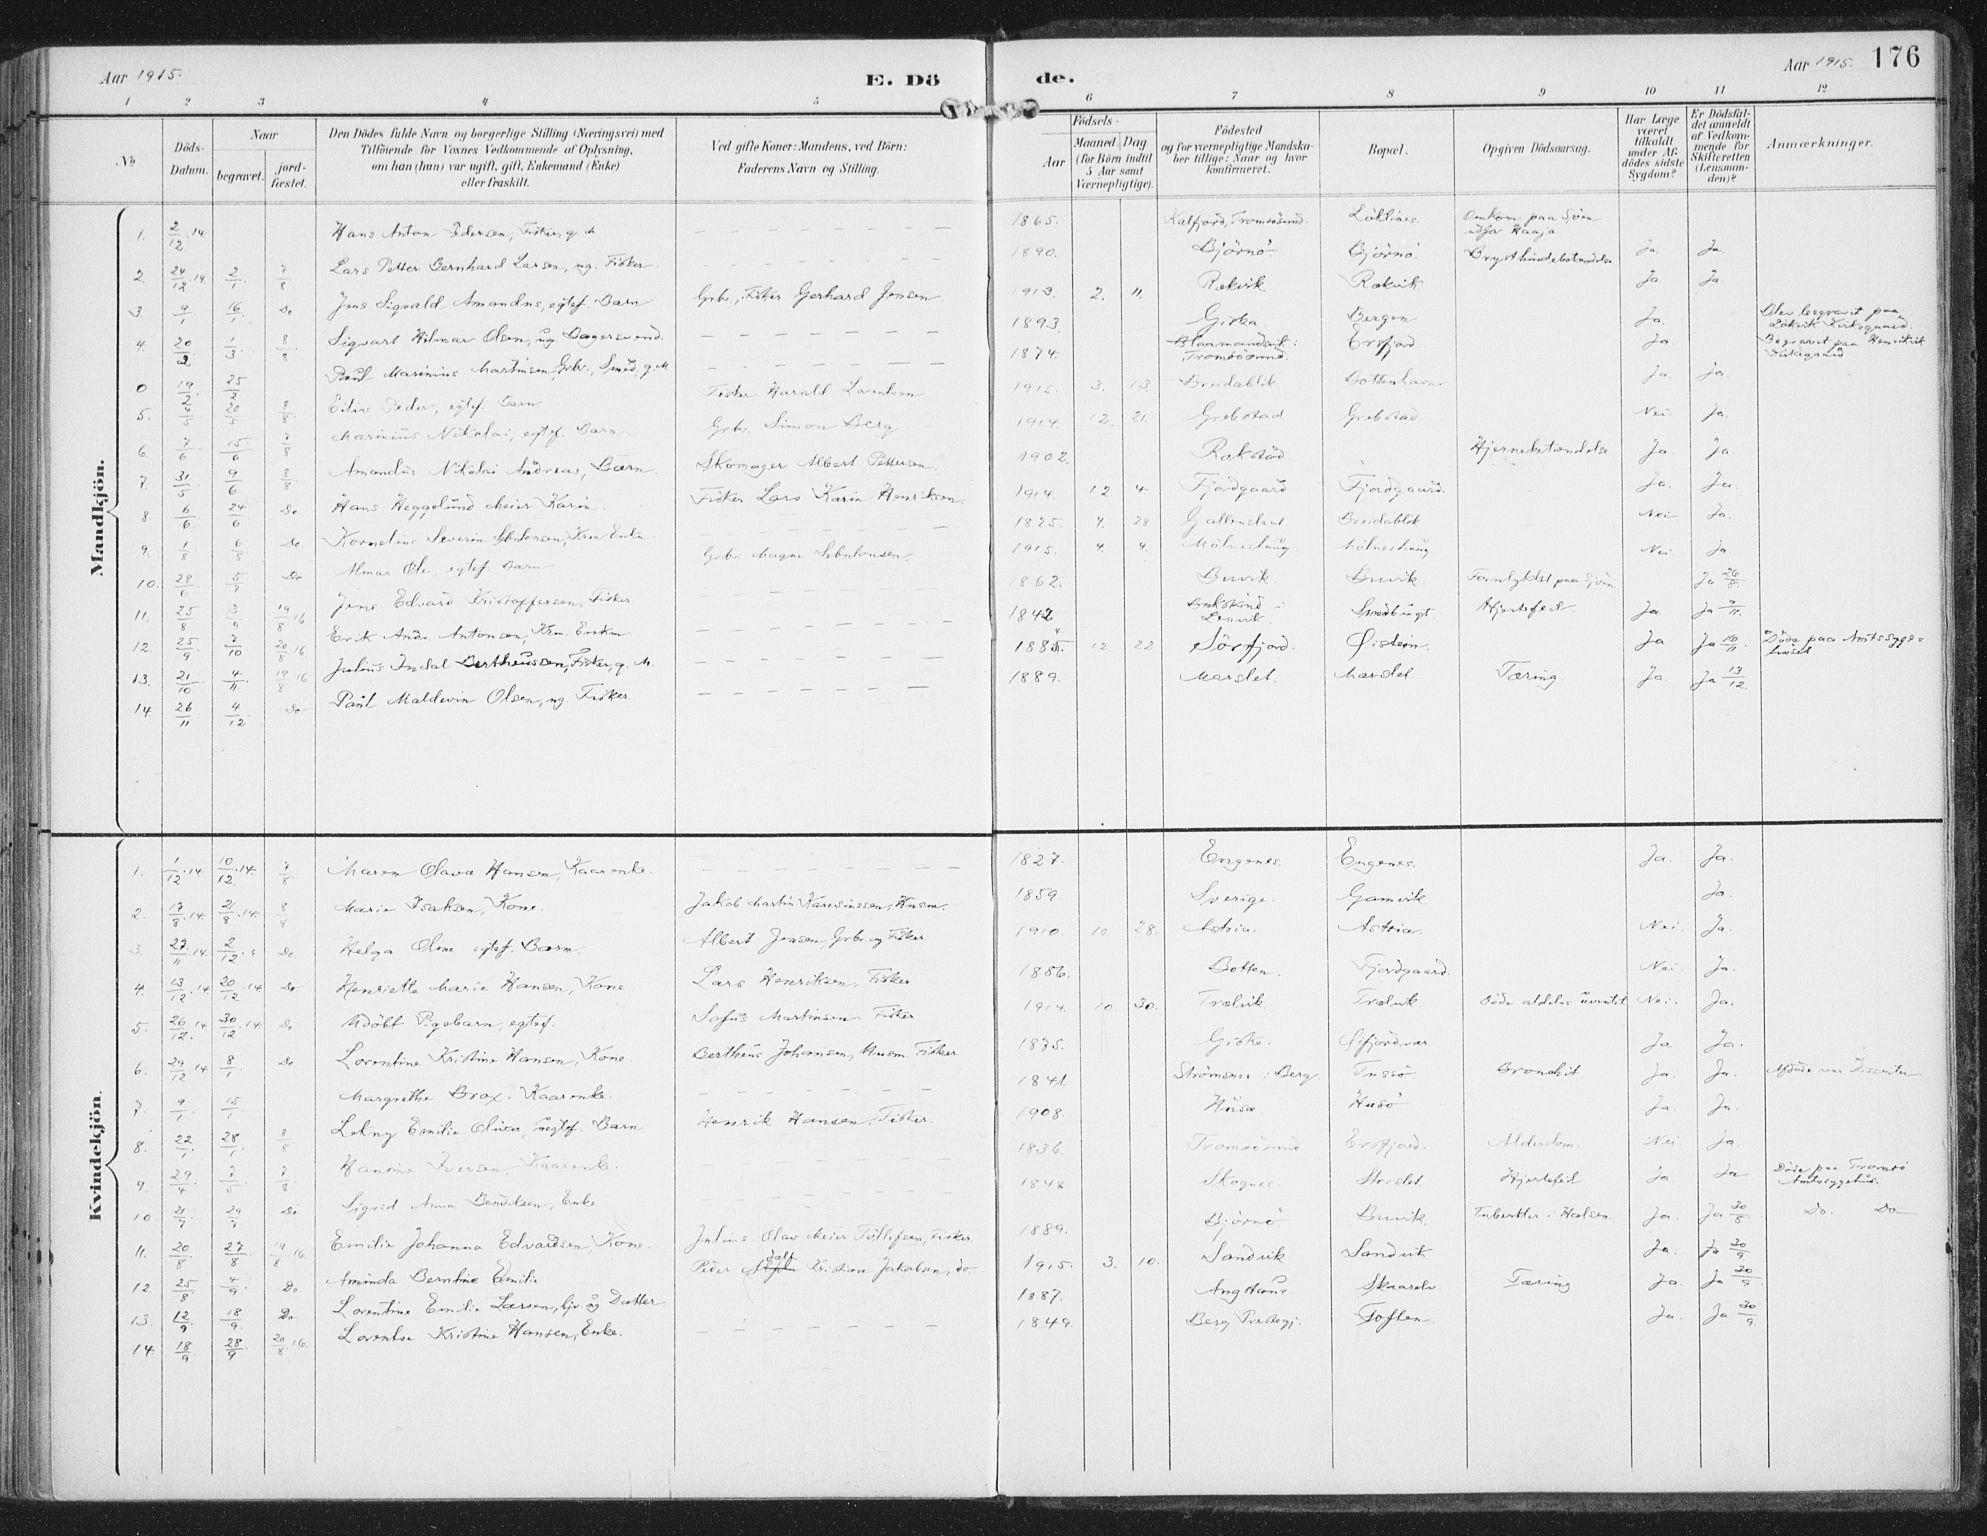 Aar 1915.
E. Dö
de.
Aar 1915.
176
1 2 3 4 5 6 7 8 9 10 11 12
No
Döds-Datum.
Naar
begravet.
jord-fæstet.
Den Dödes fulde Navn og borgerlige Stilling (Næringsvei) med
Tilföiende for Voxnes Vedkommende af Oplysning,
om han (hun) var ugift, gift, Enkemand (Enke)
eller fraskilt.
Ved gifte Koner: Mandens, ved Börn:
Faderens Navn og Stilling.
Födsels-
Aar
Maaned. Dag
(for Börn indtil
5 Aar samt
Værnepligtige).
Födested
og for værnepligtige Mandska-
ber tillige: Naar og hvor
konfirmeret.
Bopæl.
Opgiven Dödsaarsag.
Har Læge
været
tilkaldt
under Af-
dödes sidste
Sygdom?
Er Dödsfal-
det anmeldt
af Vedkom-
mende for
Skifteretten
(Lensman-
den)?
Anmærkninger.
Mandkjön.
1. 2/12 14 Hans Anton Pedersen, Fisker, g. m 1865. Kalfjord, Tromsösund. Omkom paa Sjöen
udfor Haaja
2. 24/12 14. 2/1 7/8 Lars Petter Bernhard Larsen, ug. Fisker. 1890. Björnö Björnö. Brysthindebetændelse Ja. Ja.
3. 9/1 16/1 Do Jens Sigvald Amandus, egtef. Barn Grbr., Fisker Gerhard Jensen 1913. 2. 11. Rækvik Rækvik Ja Ja.
4. 20/2 1/3 8/8 Sigvart Hilmar Olsen, ug. Dagersvend. 1893. Bergen Ja. Blev begravet paa
Lökvik Kirkegaard.
0 19/2 25/2 Paul Marinius Martinsen, Grbr., Smed, g. M 1874. Blaamandsvik i
Tromsösund. Ersfjord Ja Begravet paa
5. 4/5 20/5 8/8 Peder, egtef. Barn Fisker Harald Lorentsen 1915. 3. 13. Breidablik Bottenhavn Ja. Ja.
6. 7/6 15/6 7/8 Marinius Nikolai, egtef. Barn. Grbr. Simon Berg 1914 12. 21. Grebstad Grebstad Nei. Ja.
7. 31/5 9/6 8/8 Amandus Nikolai Andreas, Barn. Skomager Albert Pettersen. 1902. Hjernebetændelse Ja. Ja.
8. 6/6. 24/6 Do Hans Heggelund Meier Karin. Fisker Lars Karin Henriksen. 1914. 12 4. Fjordgaard Fjordgaard. Ja. Ja.
9. 1/8 Do. Kornelius Severin 1825. 4. 28 Breidablik Nei Ja.
10. 5/9 Do Almar Ole, egtef. Barn Grbr. Magne 1915. 4. 4. Mölneshaug Mölneshaug Nei. Ja
11. 25/8 3/9 19/8 16 Jens Edvard Kristoffersen, Fisker 1862. Buvik. Buvik. Forulykket paa Sjöen Ja 26/8.
12. 25/9 7/10 20/8 16 Erik Andr. Antonsen, Krm. Enkm. 1842 Hjertefeil. Ja. Ja
13. 21/10 4/11 19/8 16 Julius Indal Bertheussen, Fisker, g. M. 1885 12 22 Sörfjord. Öistein. Ja Ja 10/11. Döde paa Amtssyge-
huset
14. 26/11 4/12 Do Paul Maldevin Olsen, ug Fisker. 1889. Marslet. Marslet Tæring. Ja. Ja 13/12.
Kvindekjön.
1. 1/12 14 10/12 14. 7/8. Maren Olava Hansen, Kaarenke. 1827. Engenes. Engenes. Ja. Ja.
2. 17/8 14 21/8 14. 8/8 Marie Isaksen, Kone. Jakob Martin Karesiussen, Husm. 1859. Sverige. Gamvik Ja.
3. 27/11 14. 2/12 Do. Helga Oline egtef. Barn. Albert Jensen, Grbr. og Fisker 1910. 10. 28. Astria. Astria. Nei. Ja.
4. 13/12 14 20/12 14 Do Henriette Marie Hansen, Kone Lars Henriksen, Fisker 1886. Botten. Fjordgaard. Nei. Ja.
5. 26/12 14 30/12 14. Do. Udöbt Pigebarn, egtef. Sofus Martinsen. Fisker 1914. 10. 30. Trælvik. Trælvik Döde aldeles uventet Nei. Ja.
6. 29/12 14 8/1 Do Lorentine Kristine Hansen, Kone. Bertheus Johansen, Husm. Fisker 1875. Giske. Öifjordvær. Ja Ja.
7. 9/1 15/1 Margrethe Brox. Kaarenke. 1841. Strömsnes i Berg Tussö. Bronchit Ja. Ja. Afdöde var Dissenter
8. 22/1. 28/1. 8/8 Lokny Emilie Olivia, uegtef. Barn Henrik Hansen, Fisker. 1908. Husö Ja. Ja.
9. 29/4 7/5 7/8 Hansine Iversen, Kaarenke. 1836. Tromsösund Ersfjord. Alderdom. Nei Ja.
10. 29/7 Do Sigrid Anna Bendiksen, Enke 1848. Skognes. Hjertefeil Ja Ja Döde paa Tromsö
Amtssygehus.
11. 20/8 27/8 19/8 16. Emilie Johanna Edvardsen, Kone. Julius Olav Meier Tollefsen, Fisker. 1889. Björnö Buvik. Tuberkler i Halsen. Ja. Ja 30/8. Do. Do
12. 25/8 4/9 Do Aminda Berntine Emilie Peder Kristian Jakobsen, do. 1915. 3. 10. Sandvik Sandvik Ja. Ja 30/9
13. 12/9 18/9. Do Lorentine Emilie Larsen, hjv. ug Datter 1887. Tæring Ja. Ja 30/9.
14. 18/9 28/9 20/8 16. Lorentse Kristine Hansen, Enke. 1849. Berg Prestegj. Toften Ja. Ja 30/9.